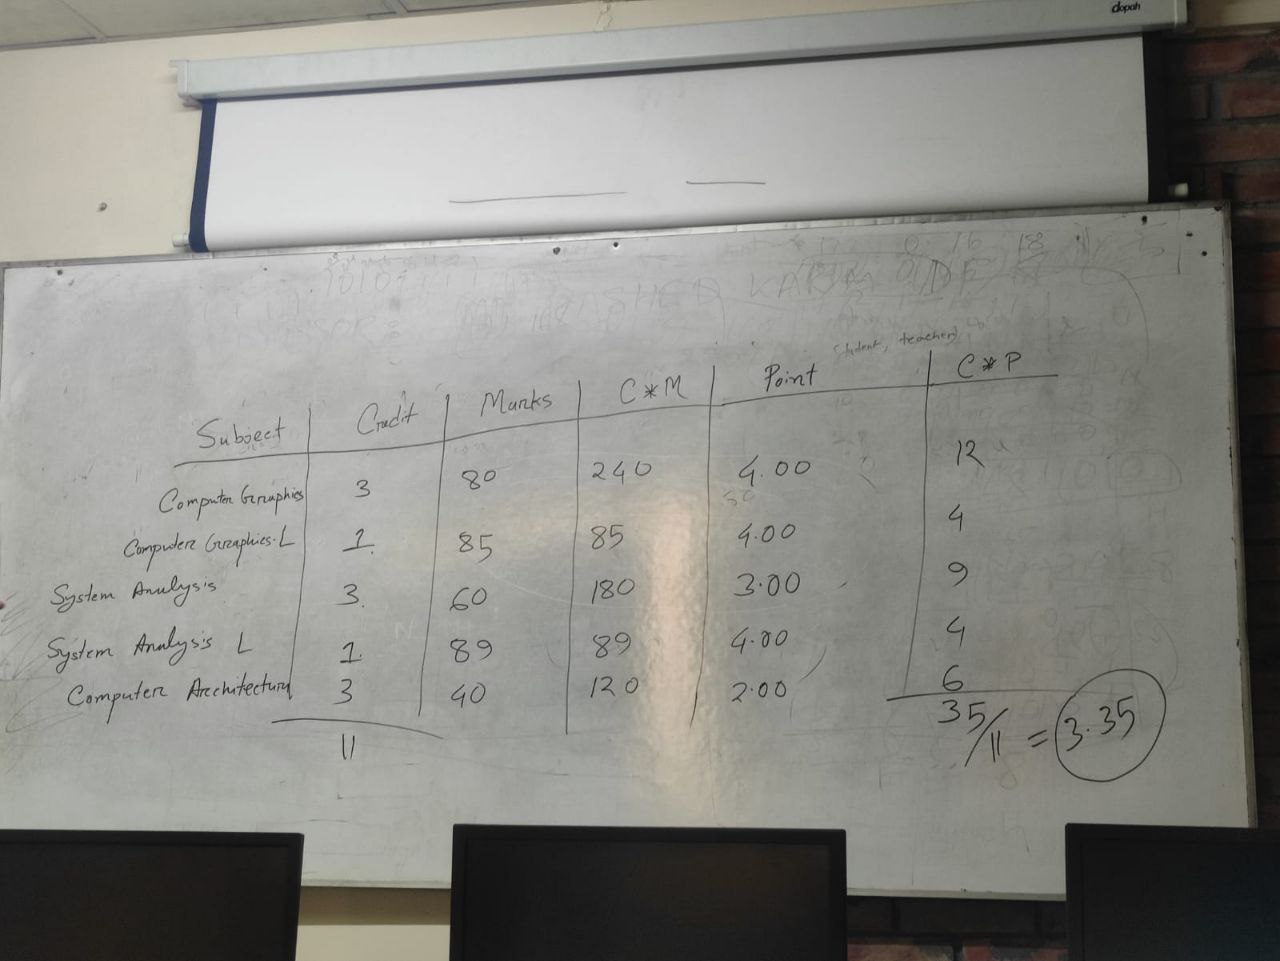 dopah
student, teacher
Subject Credit Marks C*M Point C*P
Computer Graphics 3 80 240 4.00 12
Computer Graphics.L 1 85 85 4.00 4
System Analysis 3 60 180 3.00 9
System Analysis L 1 89 89 4.00 4
Computer Architecture 3 40 120 2.00 6
11 35/11 = 3.35